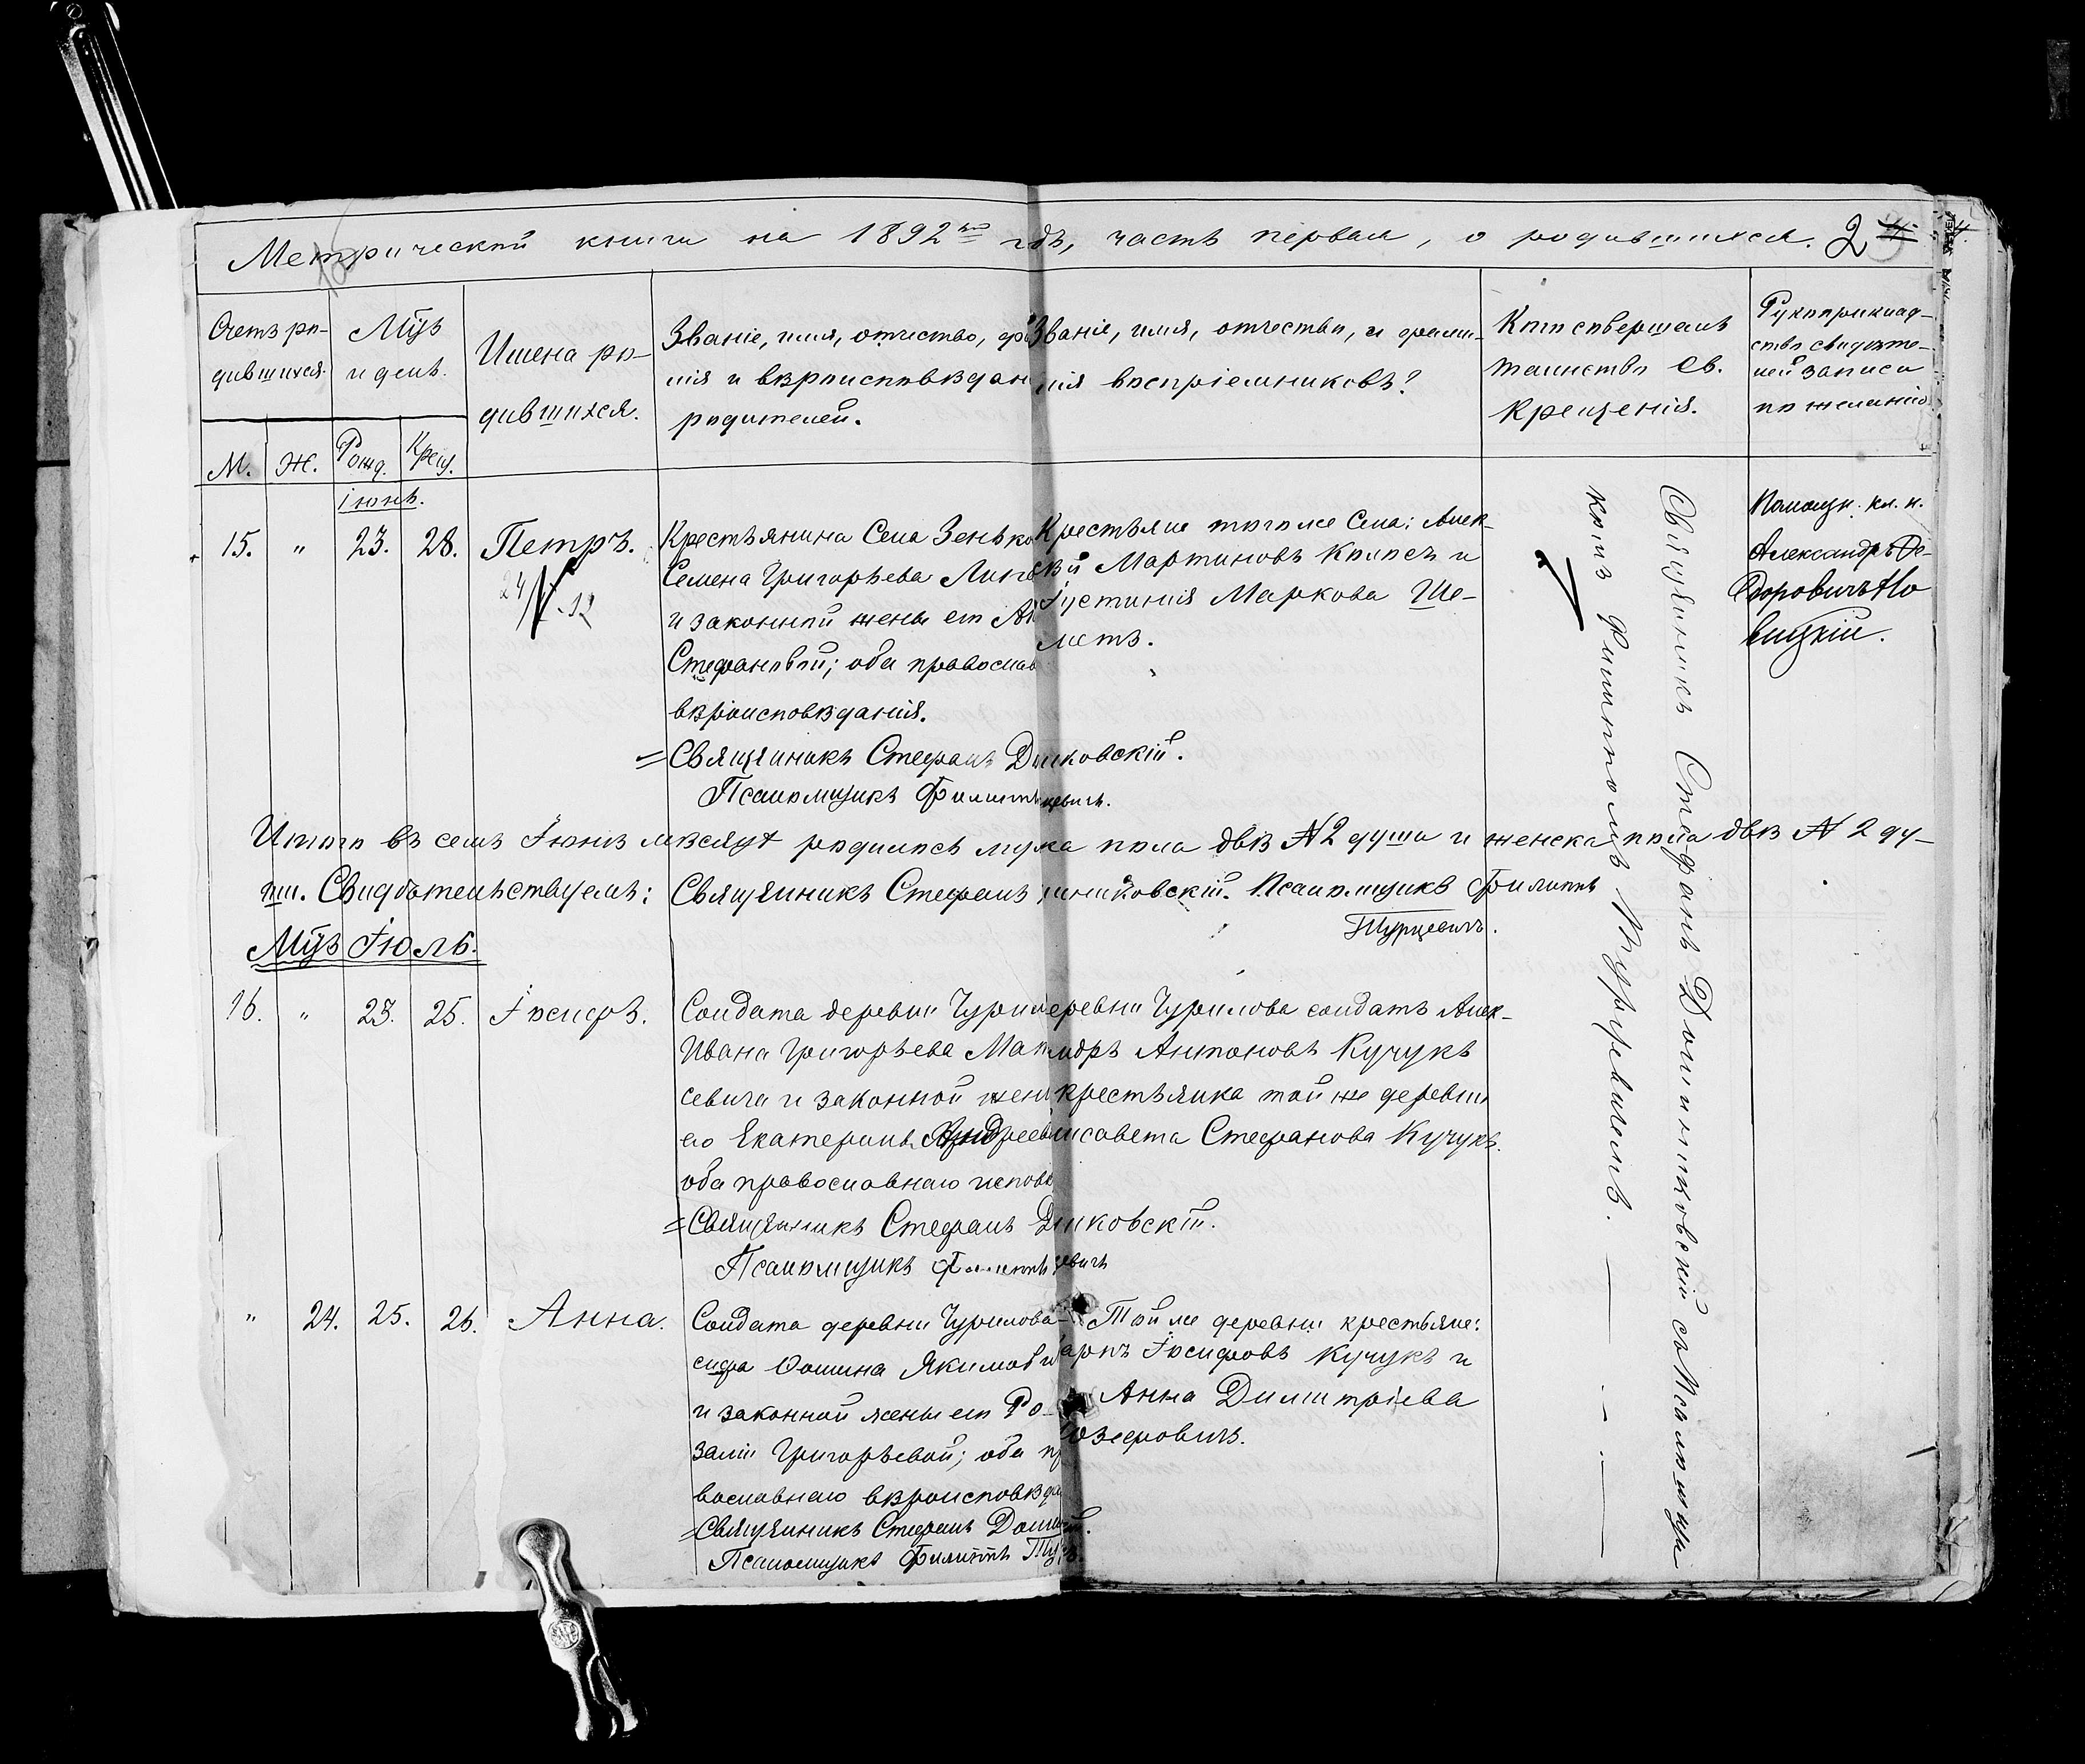 Метрической книги на 1892й годъ, часть первая, о родившихся. 2
Счетъ ро-
дившихся.
М.
Ж.
Мцъ
и день.
Рожд.
Крещ.
Имена ро-
дившихся.
Званіе, имя, отчество, фа
лія и вѣроисповѣдан
родителей.
Званіе, имя, отчество, и фами-
лія воспріемниковъ?
Кто совершалъ
таинство Св.
Крещенія.
Рукоприклад-
ство свидѣте-
лей записи
по желанію
Іюнь.
15. " 23. 28. Петръ.
Крестьянина Села Зенько
Семена Григорьева
и законной жены его
Стефановой; оба православ
вѣроисповѣданія.
=Священникъ Стефанъ ковскій.
Псаломщикъ Филиппъ цевичъ.
Крестьяне того же Села: Алек-
ѣй Мартиновъ и
Іустинія Маркова Ше-
метъ.
Священникъ Стефанъ Долинковскій съ Псаломщи
комъ Филиппомъ Турцевичемъ.
Помощн. кл. н.
Александръ Фе-
доровичъ Но
вицкій.
Итого въ семъ Іюнѣ мѣсяцѣ родилось мужа пола двѣ № 2 души и женска пола двѣ № 2 ду-
ши. Свидѣтельствуемъ: Священникъ Стефанъ ковскій. Псаломщикъ Филиппъ
Турцевичъ.
Мцъ Іюль.
16. " 23. 25. Іосифъ.
Солдата деревни Чурил
Ивана Григорьева Мат
севича и законной жен
его Екатерины Андреев
оба православнаго испов
=Священникъ Стефанъ ковскій.
Псаломщикъ Филиппъ цевичъ
еревни Чурилова солдатъ Алек-
ндръ Антоновъ Кучукъ
крестьянка той же деревни
лисавета Стефанова Кучукъ.
" 24. 25. 26. Анна.
Солдата деревни Чурилова
сифа Ѳомина Якимов
и законной жены его Ро-
заліи Григорьевой; оба пр
вославнаго вѣроисповѣда
=Священникъ Стефанъ
Псаломщикъ Филиппъ
Той же деревни крестьяне:
арпъ Іосифовъ Кучукъ и
Анна Димитріева
озефовичъ.